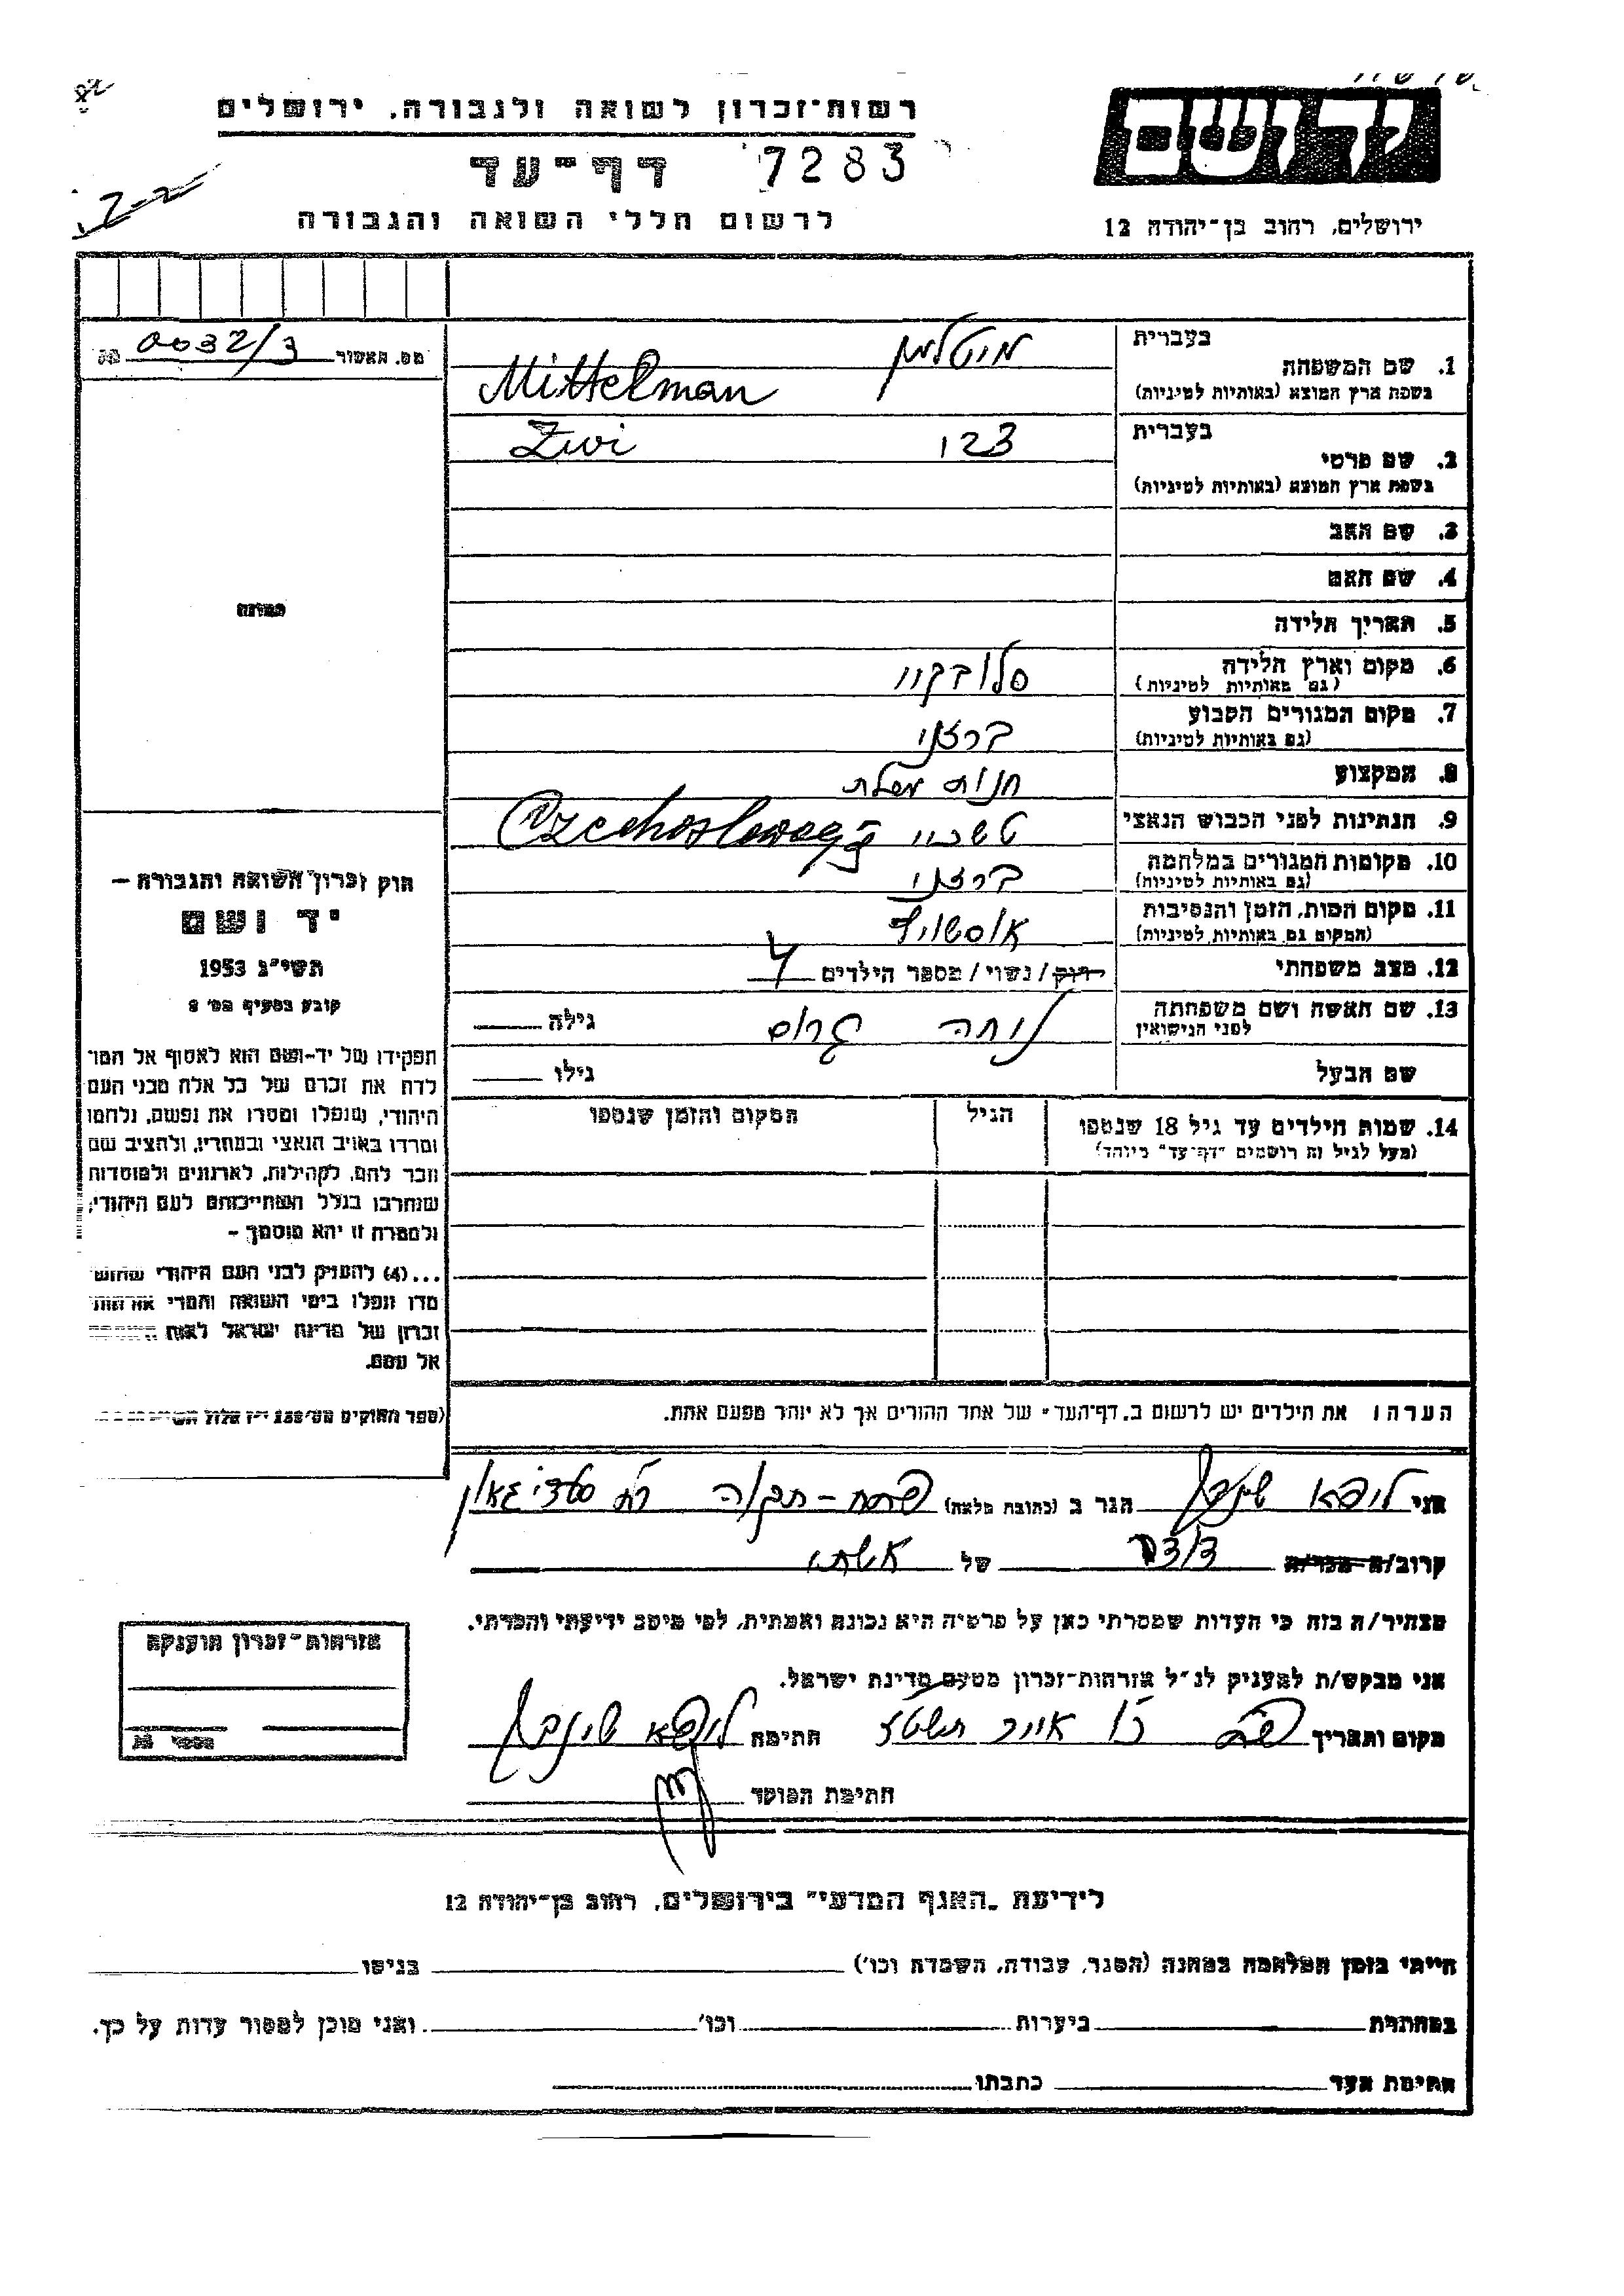 רשות-זכרון לשואה ולגבורה, ירושלים
דף-עד 7283
לרשום חללי השואה והגבורה
ידושם
ירושלים, רחוב בן-יהודה 12
מס. האשור 0032/3
1. שם המשפחה
בעברית מיטלמן
בשפת ארץ המוצא (באותיות לטיניות) Mittelman
2. שם פרטי
בעברית צבי Zwi
בשפת ארץ המוצא (באותיות לטיניות)
3. שם האב
4. שם האם
5. תאריך הלידה
6. מקום וארץ הלידה סלובקיי
(גם באותיות לטיניות)
7. מקום המגורים הקבוע
(גם באותיות לטיניות)
8. המקצוע חנות מכלת
9. הנתינות לפני הכבוש הנאצי
10. מקומות המגורים במלחמה
(גם באותיות לטיניות)
11. מקום המות, הזמן והנסיבות
(המקום גם באותיות לטיניות)
12. מצב משפחתי רווק / נשוי / מספר הילדים 4
13. שם האשה ושם משפחתה
לפני הנישואין גרוס גילה
שם הבעל גילו
14. שמות הילדים עד גיל 18 שנספו הגיל המקום והזמן שנספו
(מעל לגיל זה רושמים "דף-עד" מיוחד)
הערה: את הילדים יש לרשום ב"דף-העד" של אחד ההורים אך לא יותר מפעם אחת.
תמונה
חוק זכרון השואה והגבורה –
יד ושם
תשי"ג 1953
קובע בסעיף מס' 2
תפקידו של יד-ושם הוא לאסוף אל המו
לדת את זכרם של כל אלה מבני העם
היהודי, שנפלו ומסרו את נפשם, נלחמו
ומרדו באויב הנאצי ובעוזריו, ולהציב שם
וזכר להם, לקהילות, לארגונים ולמוסדות
שנחרבו בגלל השתייכותם לעם היהודי;
ולמטרה זו יהא מוסמך –
...(4) להעניק לבני העם היהודי שהוש
מדו ונפלו בימי השואה והמרי אזרחות
זכרון של מדינת ישראל לאות
אל עמם.
(ספר החוקים מס' 132
אני ליבא הגר ב (כתובת מלאה) פתח-תקוה
קרוב/ה מכר/ה של
מצהיר/ה בזה כי העדות שמסרתי כאן על פרטיה היא נכונה ואמתית, לפי מיטב ידיעתי והכרתי.
אני מבקש/ת להעניק לנ"ל אזרחות-זכרון מטעם מדינת ישראל.
מקום ותאריך אייר חתימה ליבא
חתימת הפוקד
אזרחות-זכרון הוענקה
מספר
לידיעת "האגף המדעי" בירושלים, רחוב בן-יהודה 12
הייתי בזמן המלחמה במחנה (הסגר, עבודה, השמדה וכו') בגיטו
במחתרת ביערות וכו' ואני מוכן למסור עדות על כך.
חתימת העד כתבתו